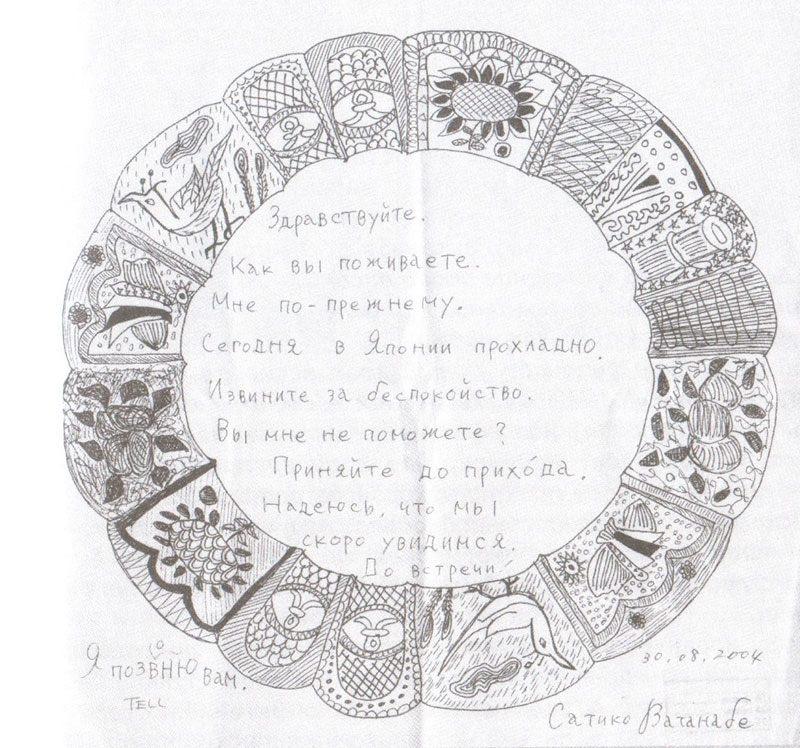 Здравствуйте.
Как вы поживаете.
Мне по-прежнему.
Сегодня в Японии прохладно.
Извините за беспокойство.
Вы мне не поможете?
Приняйте до прихо́да.
Надеюсь, что мы
скоро увидимся.
До встречи!
Я позвню вам.
о
TELL
30.08.2004
Сатико Ватанабе